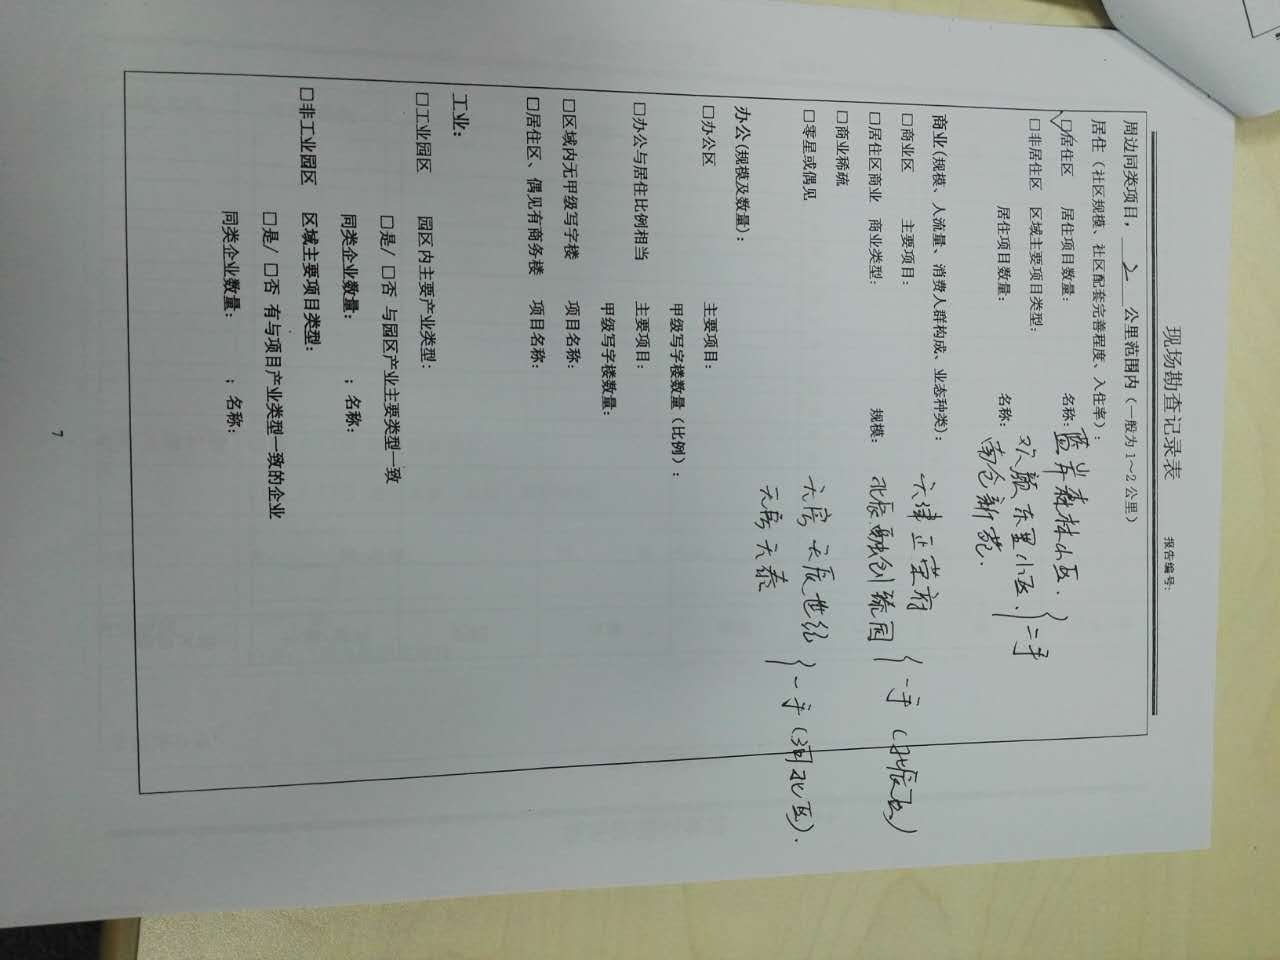 现场勘查记录表
报告编号:
周边同类项目，2公里范围内（一般为1～2公里）
居住（社区规模、社区配套完善程度、入住率）:
☑居住区 居住项目数量: 名称: 蓝岸森林小区.
□非居住区 区域主要项目类型: 欢颜东里小区. }二手
居住项目数量: 名称: 南仓新苑.
商业(规模、人流量、消费人群构成、业态种类):
□商业区 主要项目: 天津正荣府
□居住区商业 商业类型: 规模: 北辰融创臻园 }一手(北辰区)
□商业稀疏
□零星或偶见 天房天辰世纪
}一手(河北区).
天房天泰
办公(规模及数量):
□办公区 主要项目:
甲级写字楼数量（比例）:
□办公与居住比例相当 主要项目:
甲级写字楼数量:
□区域内无甲级写字楼 项目名称:
□居住区、偶见有商务楼 项目名称:
工业:
□工业园区 园区内主要产业类型:
□是/ □否 与园区产业主要类型一致
同类企业数量: ；名称:
□非工业园区 区域主要项目类型:
□是/ □否 有与项目产业类型一致的企业
同类企业数量: ；名称:
7